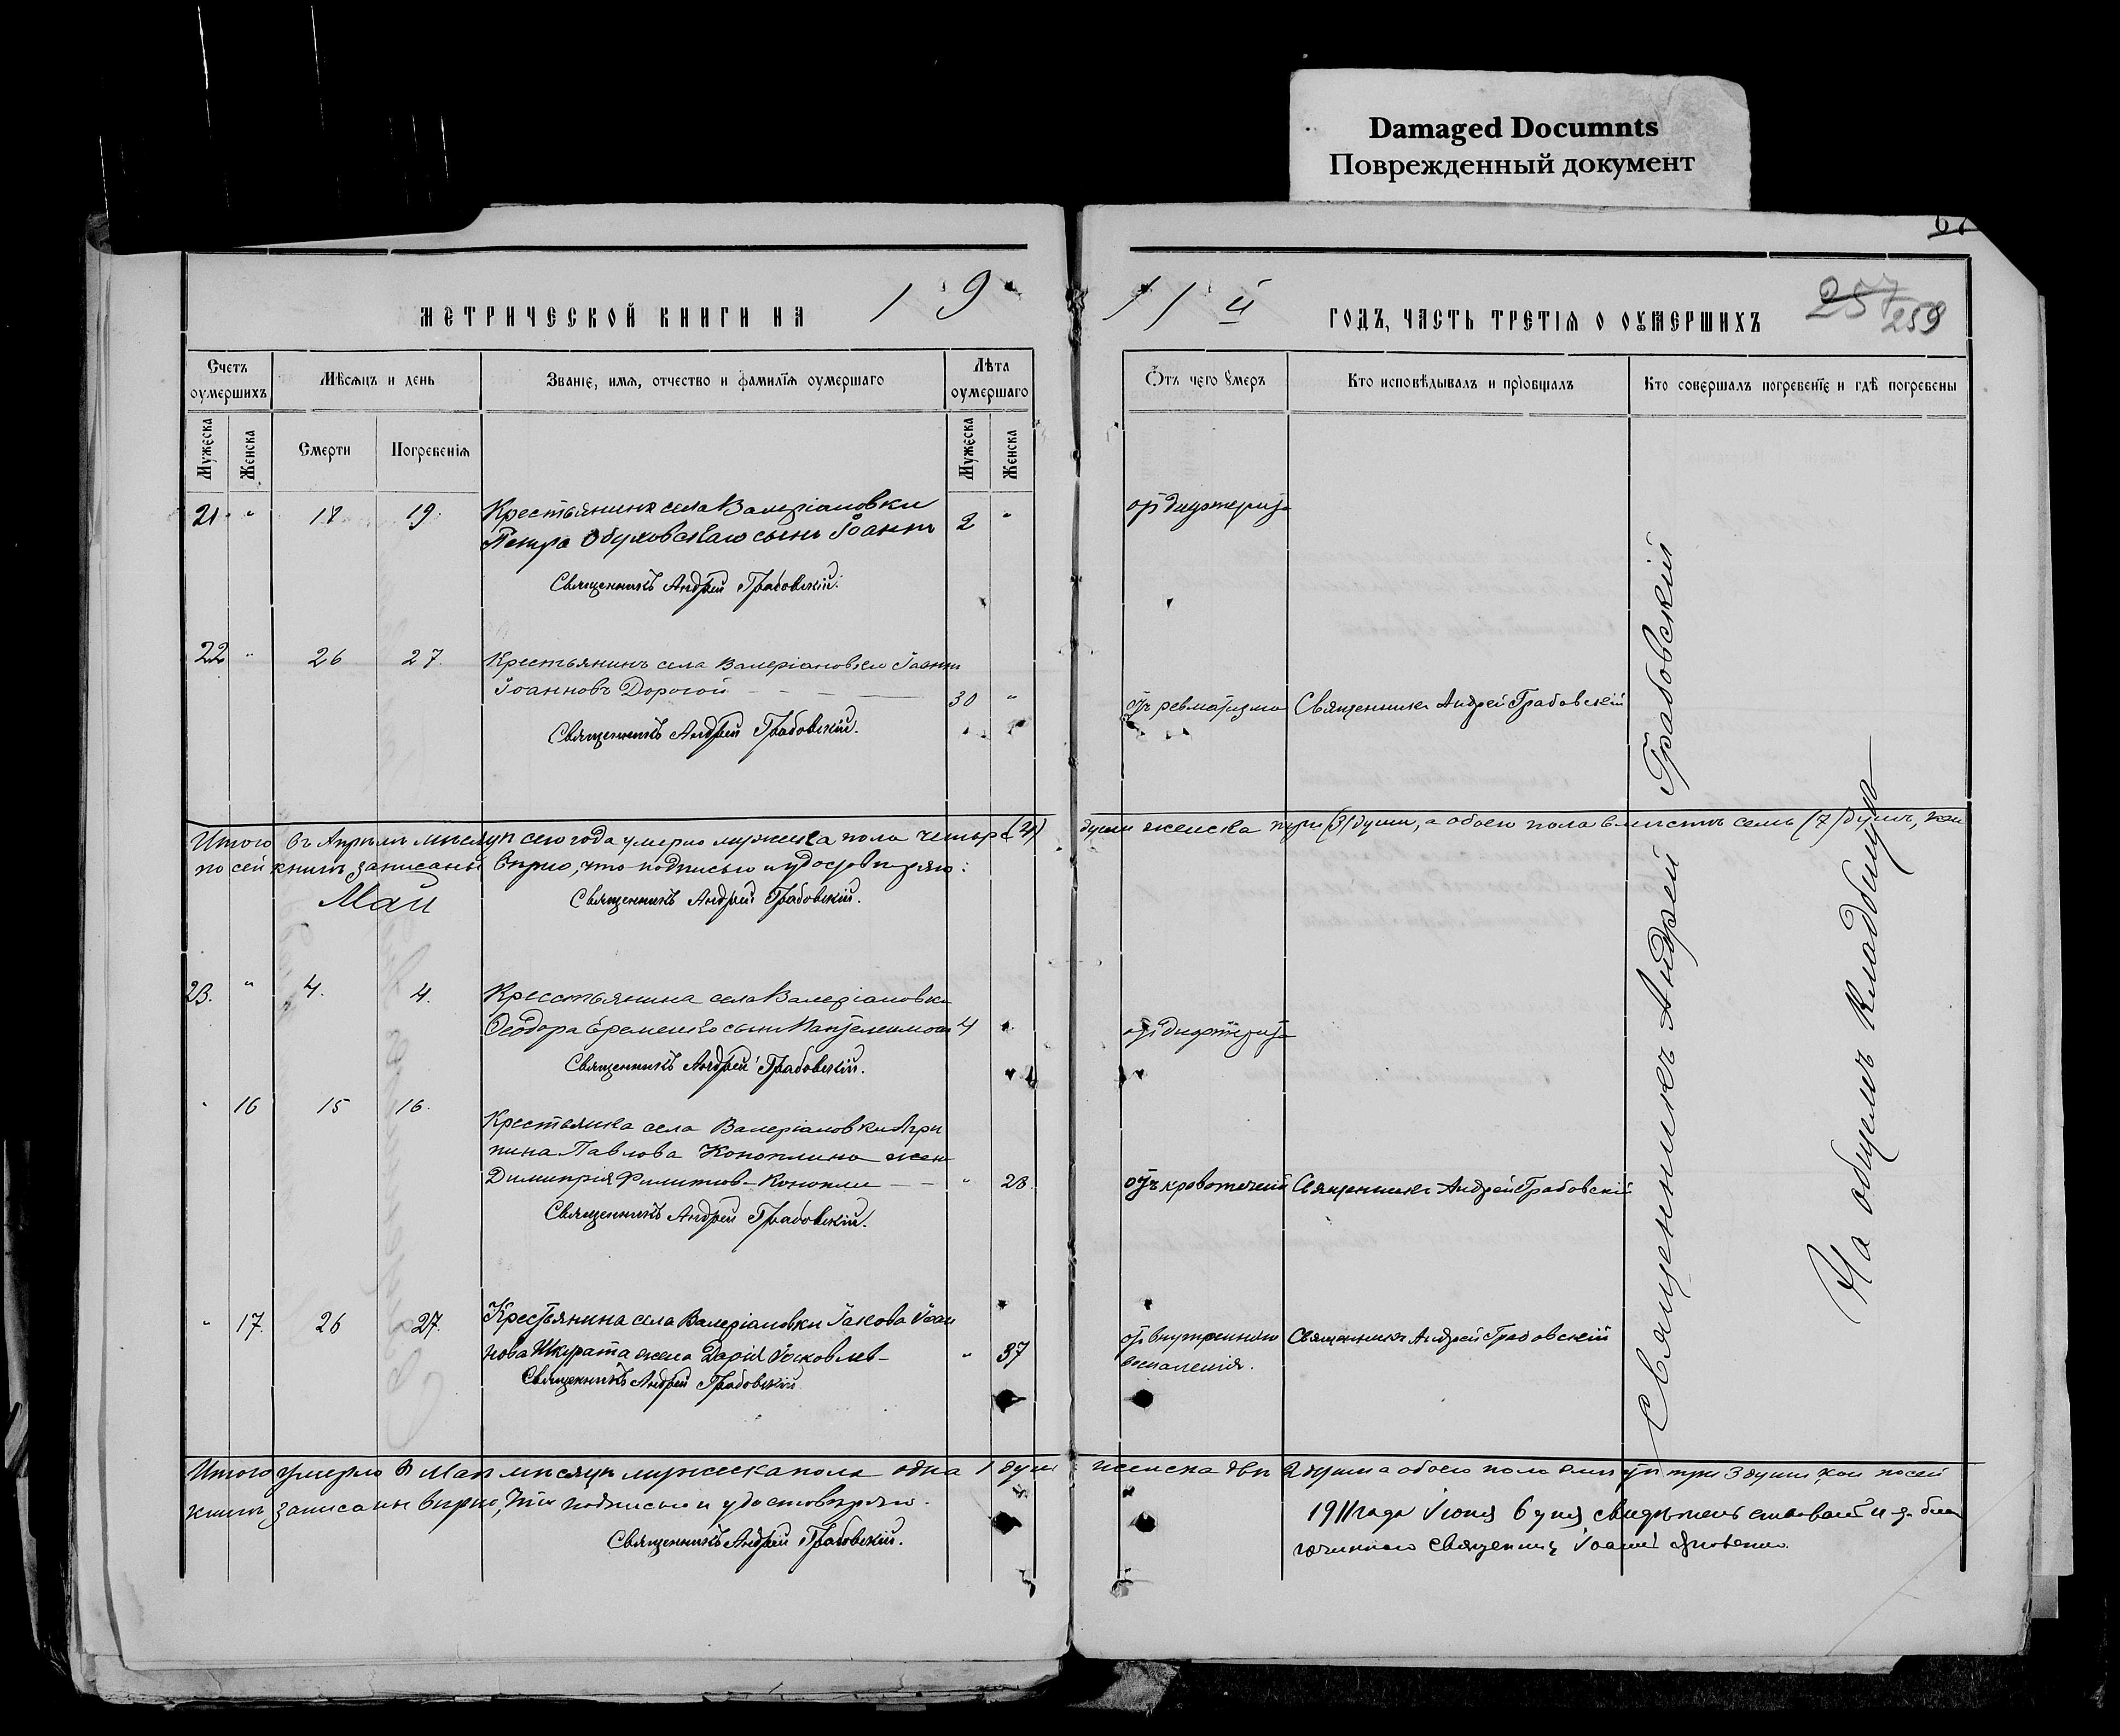 Damaged Documnts
Поврежденный документ
67
МЕТРИЧЕСКОЙ КНИГИ НА 19
11й ГОДЪ, ЧАСТЬ ТРЕТІЯ О ОУМЕРШИХЪ
257
259
Счетъ оумершихъ
Мѣсяцъ и день
Званіе, имя, отчество и фамилія оумершаго
Лѣта оумершаго
Отъ чего умеръ
Кто исповѣдывалъ и пріобщалъ
Кто совершалъ погребеніе и гдѣ погребены
Мужеска
Женска
Смерти
Погребенія
Мужеска
Женска
21 " 19 Крестьянина села Валеріановки
Петра Обуховскаго сынъ Іоаннъ 2 " отъ дифтерита
Священникъ Андрей Грабовскій.
22 " 26 27. Крестьянинъ села Валеріановки Іоаннъ
Іоанновъ Дорогой 30 " отъ ревматизма Священникъ Андрей Грабовскій
Священникъ Андрей Грабовскій.
Итого въ Апрѣлѣ мѣсяцѣ сего года умерло мужеска пола четыре (4) души женска три (3) души, а обоего пола вмѣстѣ семь (7) душъ, кои
по сей книгѣ записаны вѣрно, что подписью и удостовѣряю:
Май
Священникъ Андрей Грабовскій.
23. " 4. 4. Крестьянина села Валеріановки
Ѳеодора Еременко сынъ Пантелеимонъ 4 " отъ дифтерита
Священникъ Андрей Грабовскій.
" 16 15 16. Крестьянка села Валеріановки Агри
пина Павлова Коноплина жена
Димитрія Филиппов Конопли " 28 отъ кровотеченій Священникъ Андрей Грабовскій
Священникъ Андрей Грабовскій.
" 17. 26 27. Крестьянина села Валеріановки Іакова Іоан
нова Шкурата жена Дарія Іаковлев " 37 отъ внутренняго воспаленія. Священникъ Андрей Грабовскій
Священникъ Андрей Грабовскій
Священникъ Андрей Грабовскій
На общемъ кладбищѣ
Итого умерло въ Маѣ мѣсяцѣ мужеска пола одна 1 душа женска двѣ 2 души а обоего пола три 3 души, кои по сей
книгѣ записаны вѣрно, подписью и удостовѣряю.
Священникъ Андрей Грабовскій.
1911 года Іюня 6 дня свидѣтельствовалъ и. д. бла
гочиннаго священникъ Іоаннъ